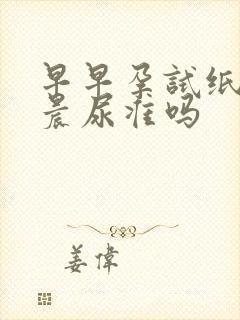 早早孕試纸
晨尿准吗
姜偉